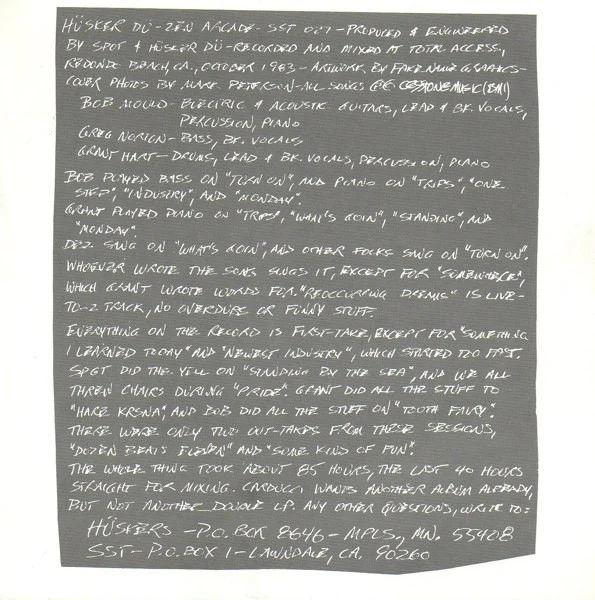 HÜSKER DÜ - ZEN ARCADE - SST 027 - PRODUCED & ENGINEERED
BY SPOT & HÜSKER DÜ - RECORDED AND MIXED AT TOTAL ACCESS,
REDONDO BEACH, CA., OCTOBER 1983 - ARTWORK BY FAKE NAME GRAPHICS -
COVER PHOTOS BY MARK PETERSON - ALL SONGS CESSTONE MUSIC (BMI)
BOB MOULD - ELECTRIC & ACOUSTIC GUITARS, LEAD & BK. VOCALS,
PERCUSSION, PIANO
GREG NORTON - BASS, BK. VOCALS
GRANT HART - DRUMS, LEAD & BK. VOCALS, PERCUSSION, PIANO
BOB PLAYED BASS ON "TURN ON", AND PIANO ON "TRIPS", "ONE
STEP", "INDUSTRY", AND "MONDAY".
GRANT PLAYED PIANO ON "TRIPS", "WHAT'S GOIN", "STANDING", AND
"MONDAY".
DEZ SANG ON "WHAT'S GOIN", AND OTHER FOLKS SANG ON "TURN ON".
WHOEVER WROTE THE SONG SINGS IT, EXCEPT FOR "SOMEWHERE",
WHICH GRANT WROTE WORDS FOR. "REOCCURRING DREAMS" IS LIVE-
TO-2 TRACK, NO OVERDUBS OR FUNNY STUFF.
EVERYTHING ON THE RECORD IS FIRST-TAKE, EXCEPT FOR "SOMETHING
I LEARNED TODAY" AND "NEWEST INDUSTRY", WHICH STARTED TOO FAST.
SPOT DID THE YELL ON "STANDING BY THE SEA", AND WE ALL
THREW CHAIRS DURING "PRIDE". GRANT DID ALL THE STUFF TO
"HARE KRSNA", AND BOB DID ALL THE STUFF ON "TOOTH FAIRY".
THERE WERE ONLY TWO OUT-TAKES FROM THESE SESSIONS,
"DOZEN BEATS ELEVEN" AND "SOME KIND OF FUN".
THE WHOLE THING TOOK ABOUT 85 HOURS, THE LAST 40 HOURS
STRAIGHT FOR MIXING. CARDUCCI WANTS ANOTHER ALBUM ALREADY,
BUT NOT ANOTHER DOUBLE LP. ANY OTHER QUESTIONS, WRITE TO:
HÜSKERS - P.O. BOX 8646 - MPLS., MN. 55408
SST - P.O. BOX 1 - LAWNDALE, CA. 90260